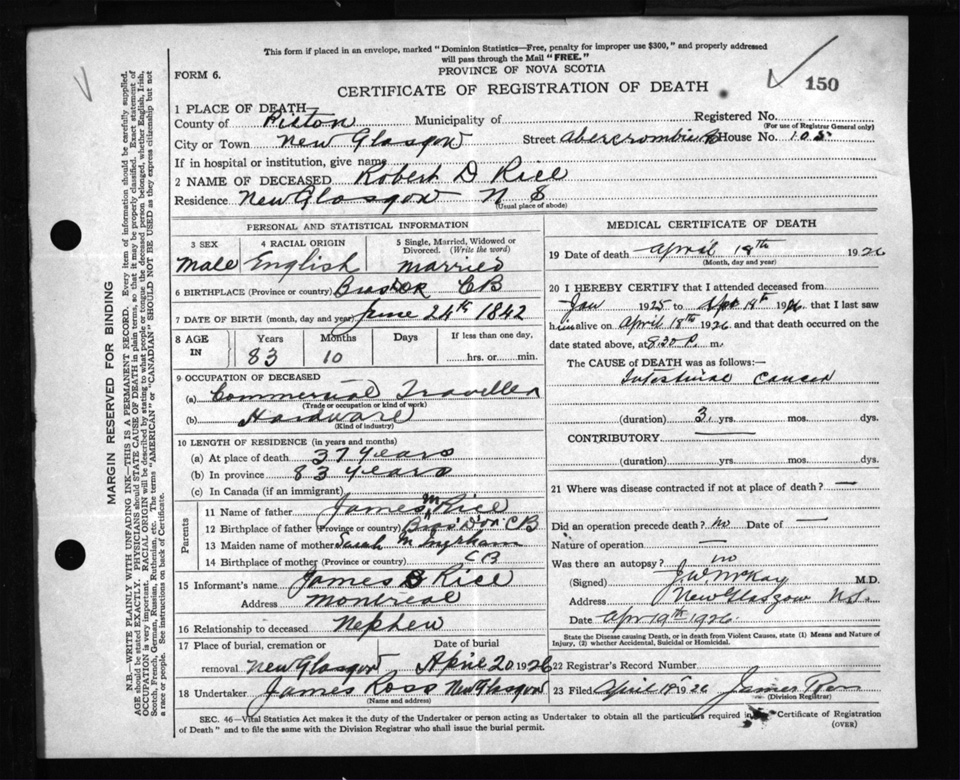 This form if placed in an envelope, marked "Dominion Statistics—Free, penalty for improper use $300," and properly addressed
will pass through the Mail "FREE."
FORM 6.
PROVINCE OF NOVA SCOTIA
CERTIFICATE OF REGISTRATION OF DEATH
150
1 PLACE OF DEATH
County of Pictou Municipality of Registered No.
(For use of Registrar General only)
City or Town New Glasgow Street Abercrombie House No. 105
If in hospital or institution, give name
2 NAME OF DECEASED Robert D Rice
Residence New Glasgow N S
(Usual place of abode)
PERSONAL AND STATISTICAL INFORMATION
3 SEX 4 RACIAL ORIGIN 5 Single, Married, Widowed or
Divorced. (Write the word)
Male English Married
6 BIRTHPLACE (Province or country) Bras D'OR CB
7 DATE OF BIRTH (month, day and year) June 24th 1842
8 AGE IN Years Months Days If less than one day,
83 10 hrs. or min.
9 OCCUPATION OF DECEASED
(a) Commercial Traveller
(Trade or occupation or kind of work)
(b) Hardware
(Kind of industry)
10 LENGTH OF RESIDENCE (in years and months)
(a) At place of death 37 years
(b) In province 83 years
(c) In Canada (if an immigrant)
Parents
11 Name of father James M Rice
12 Birthplace of father (Province or country) Bras D'or CB
13 Maiden name of mother Sarah M Ingraham
14 Birthplace of mother (Province or country) CB
15 Informant's name James B Rice
Address Montreal
16 Relationship to deceased Nephew
17 Place of burial, cremation or Date of burial
removal New Glasgow April 20 1926
18 Undertaker James Ross New Glasgow
(Name and address)
MEDICAL CERTIFICATE OF DEATH
19 Date of death April 18th 1926
(Month, day and year)
20 I HEREBY CERTIFY that I attended deceased from
Jan 1925 to Apr 18th 1926, that I last saw
him alive on April 18th 1926 and that death occurred on the
date stated above, at 8.30 P. m.
The CAUSE OF DEATH was as follows:—
Intestinal Cancer
(duration) 3 yrs. mos. dys.
CONTRIBUTORY
(duration) yrs. mos. dys.
21 Where was disease contracted if not at place of death? —
Did an operation precede death? No Date of —
Nature of operation —
Was there an autopsy? no
(Signed) J W McKay M.D.
Address New Glasgow N.S.
Date Apr 19th 1926
State the Disease causing Death, or in death from Violent Causes, state (1) Means and Nature of
Injury, (2) whether Accidental, Suicidal or Homicidal.
22 Registrar's Record Number
23 Filed April 19th 1926 James
(Division Registrar)
SEC. 46—Vital Statistics Act makes it the duty of the Undertaker or person acting as Undertaker to obtain all the particulars required in Certificate of Registration
of Death" and to file the same with the Division Registrar who shall issue the burial permit.
(OVER)
MARGIN RESERVED FOR BINDING
N.B.—WRITE PLAINLY WITH UNFADING INK—THIS IS A PERMANENT RECORD. Every item of information should be carefully supplied.
AGE should be stated EXACTLY. PHYSICIANS should STATE CAUSE OF DEATH in plain terms, so that it may be properly classified. Exact statement of
OCCUPATION is very important. RACIAL ORIGIN will be described by stating to what people or tongue the deceased person belonged, whether English, Irish,
Scotch, French, German, Russian, Ruthenian, etc. The terms "AMERICAN" or "CANADIAN" SHOULD NOT BE USED as they express citizenship but not
a race or people. See instructions on back of Certificate.